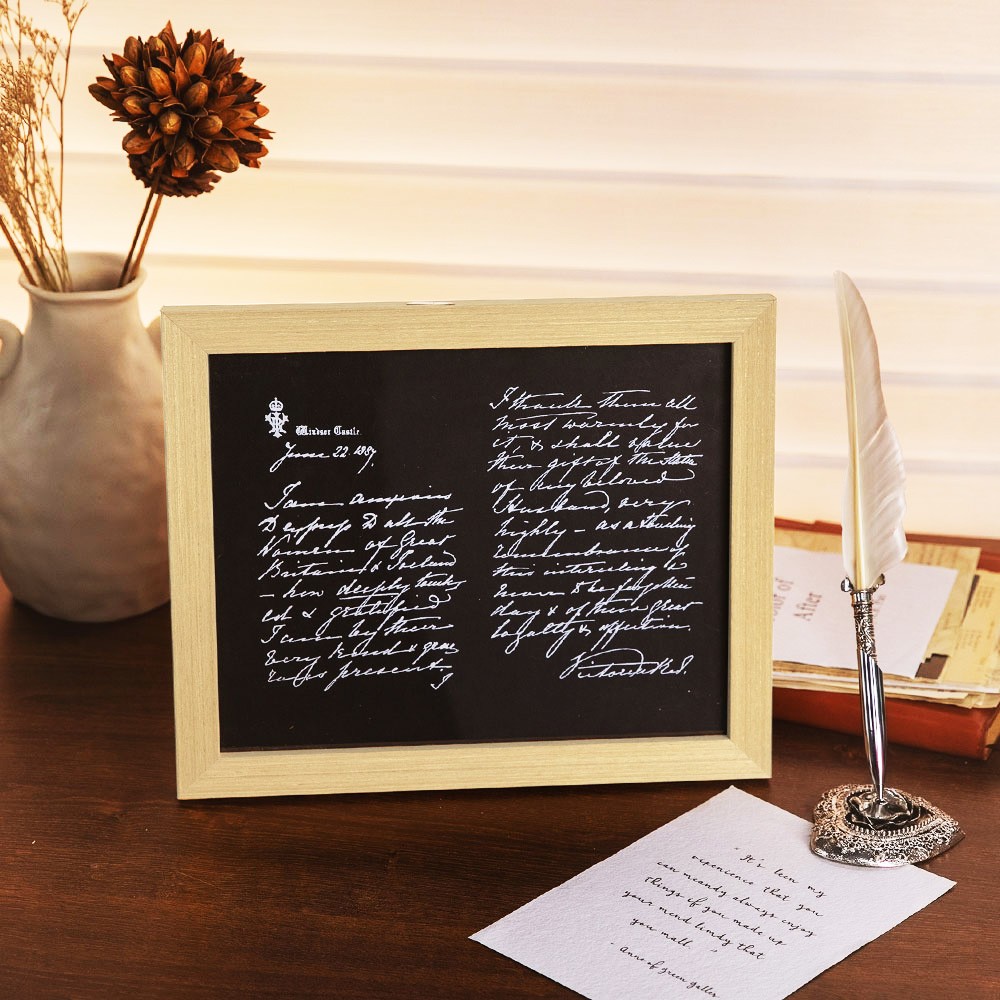 Windsor Castle.
June 22. 1887.
I am anxious
to express to all the
Women of Great
Britain & Ireland
- how deeply touch-
ed & gratified
I am by their
very kind & gene
rous present.
I
I thank them all
most warmly for
it, & shall value
their gift of the Statue
of my beloved
Husband, very
highly - as a
remembrance of
this interesting &
never to be forgotten
day & of their great
loyalty & affection.
Victoria R.I.
of
After
"It's been my
experience that you
can nearly always enjoy
things if you made up
your mind firmly that
you mall. "
- Anne of green galler